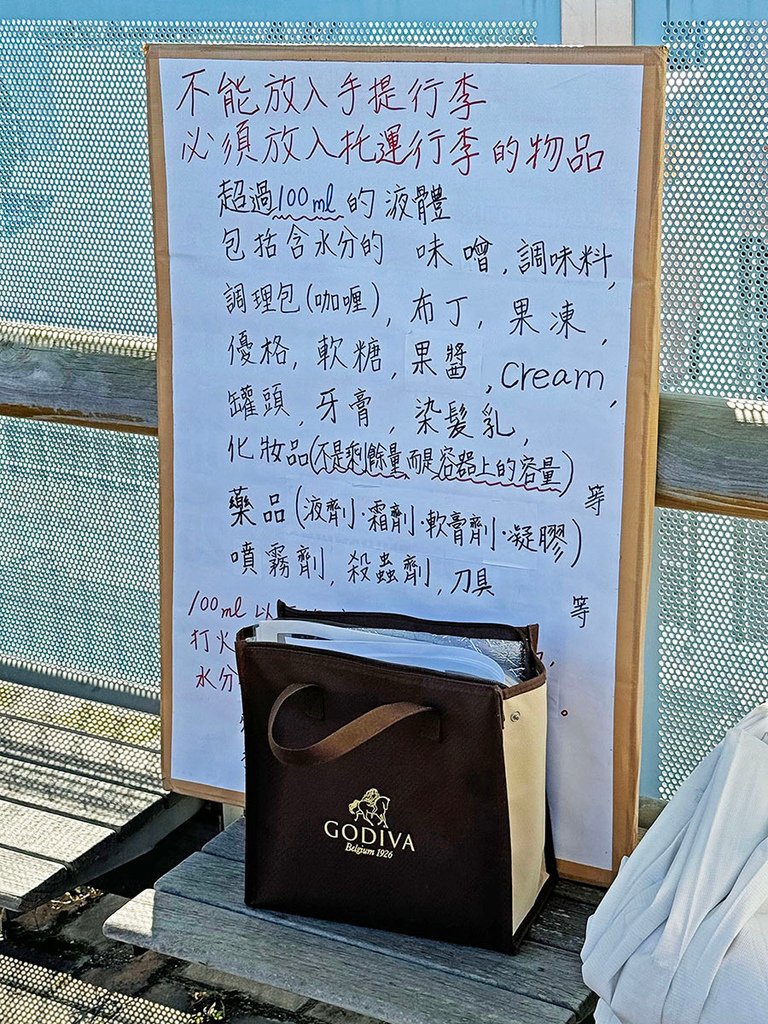 不能放入手提行李
必須放入托運行李的物品
超過100ml的液體
包括含水分的 味噌,調味料,
調理包(咖喱),布丁,果凍,
優格,軟糖,果醬,cream,
罐頭,牙膏,染髮乳,
化妝品(不是剩餘量而是容器上的容量)
等
藥品(液劑·霜劑·軟膏劑·凝膠)
噴霧劑,殺蟲劑,刀具
等
100ml以
打火
水分
GODIVA
Belgium 1926